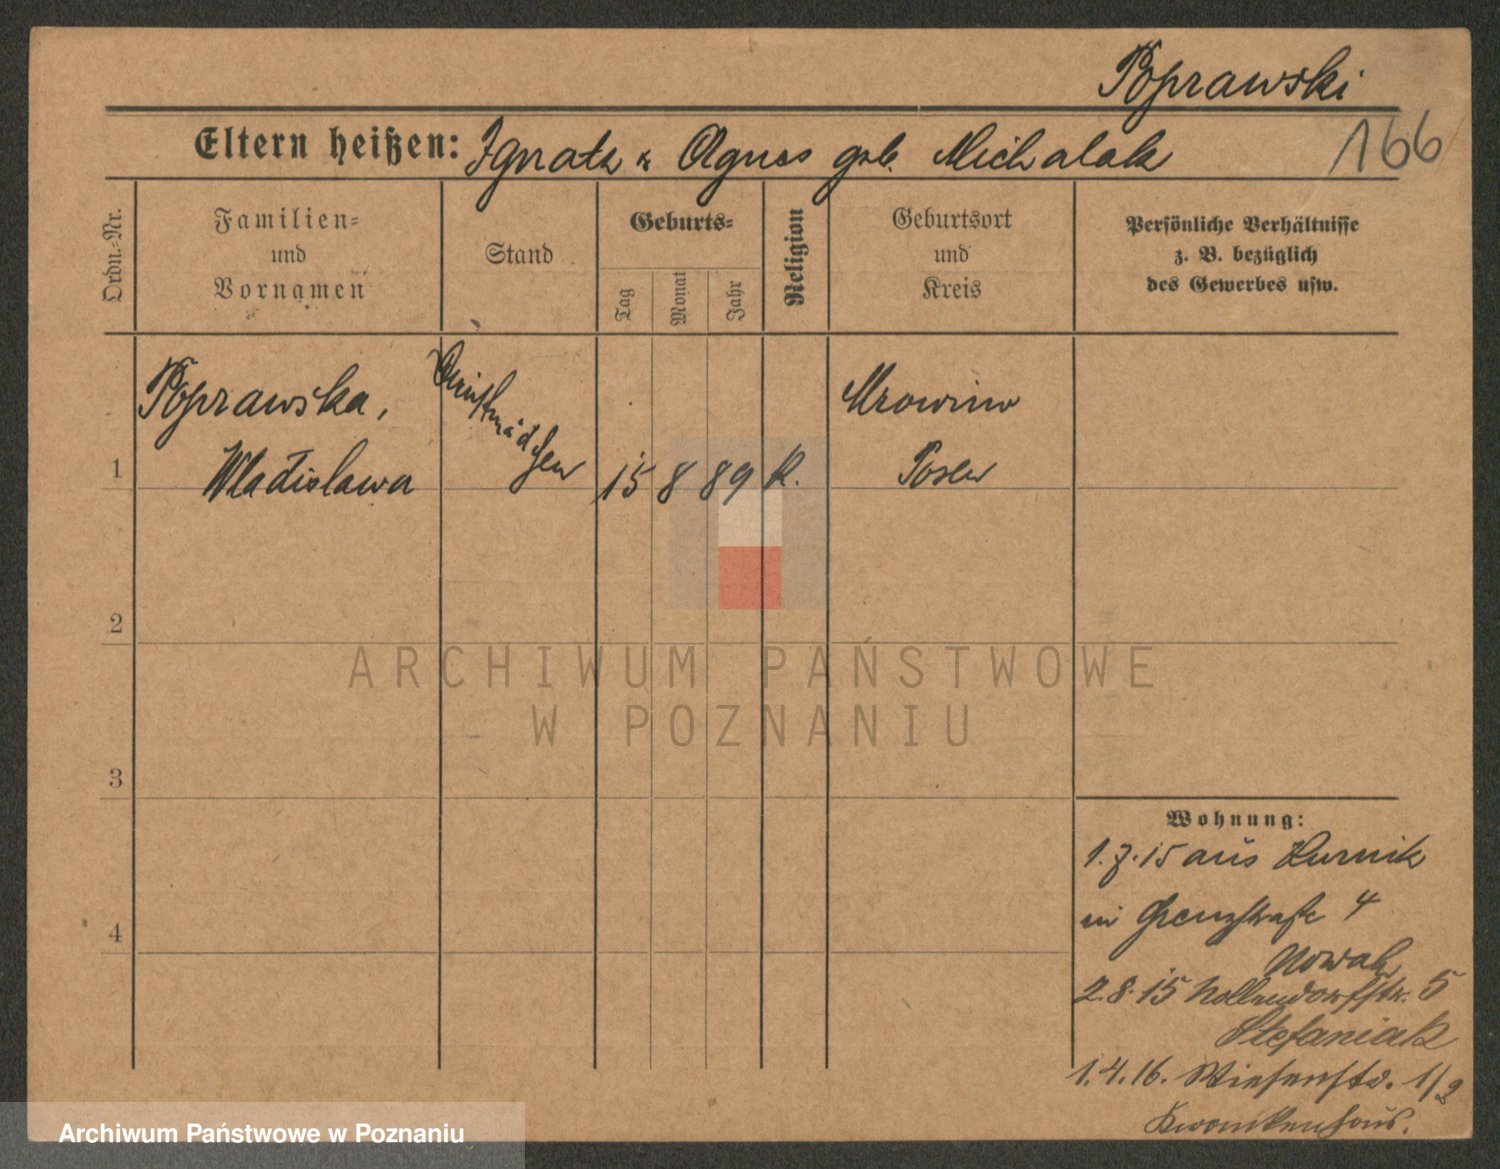 Poprawski
166
Eltern heißen: Ignatz u Agnes geb. Michalak
Ordn.-Nr.
Familien-
und
Vornamen
Stand
Geburts-
Tag
Monat
Jahr
Religion
Geburtsort
und
Kreis
Persönliche Verhältnisse
z. B. bezüglich
des Gewerbes usw.
1
Poprawska,
Wladislawa
Dienstmädchen
15 8 89 K.
Mrowino
Posen
2
3
4
ARCHIWUM PAŃSTWOWE
W POZNANIU
Wohnung:
1.7.15 aus Kurnik
in Grenzstraße 4
Nowak
2.8.15 Nollendorfstr. 5
Stefaniak
1.4.16. Wiesenstr. 1/2
Krankenhaus.
Archiwum Państwowe w Poznaniu